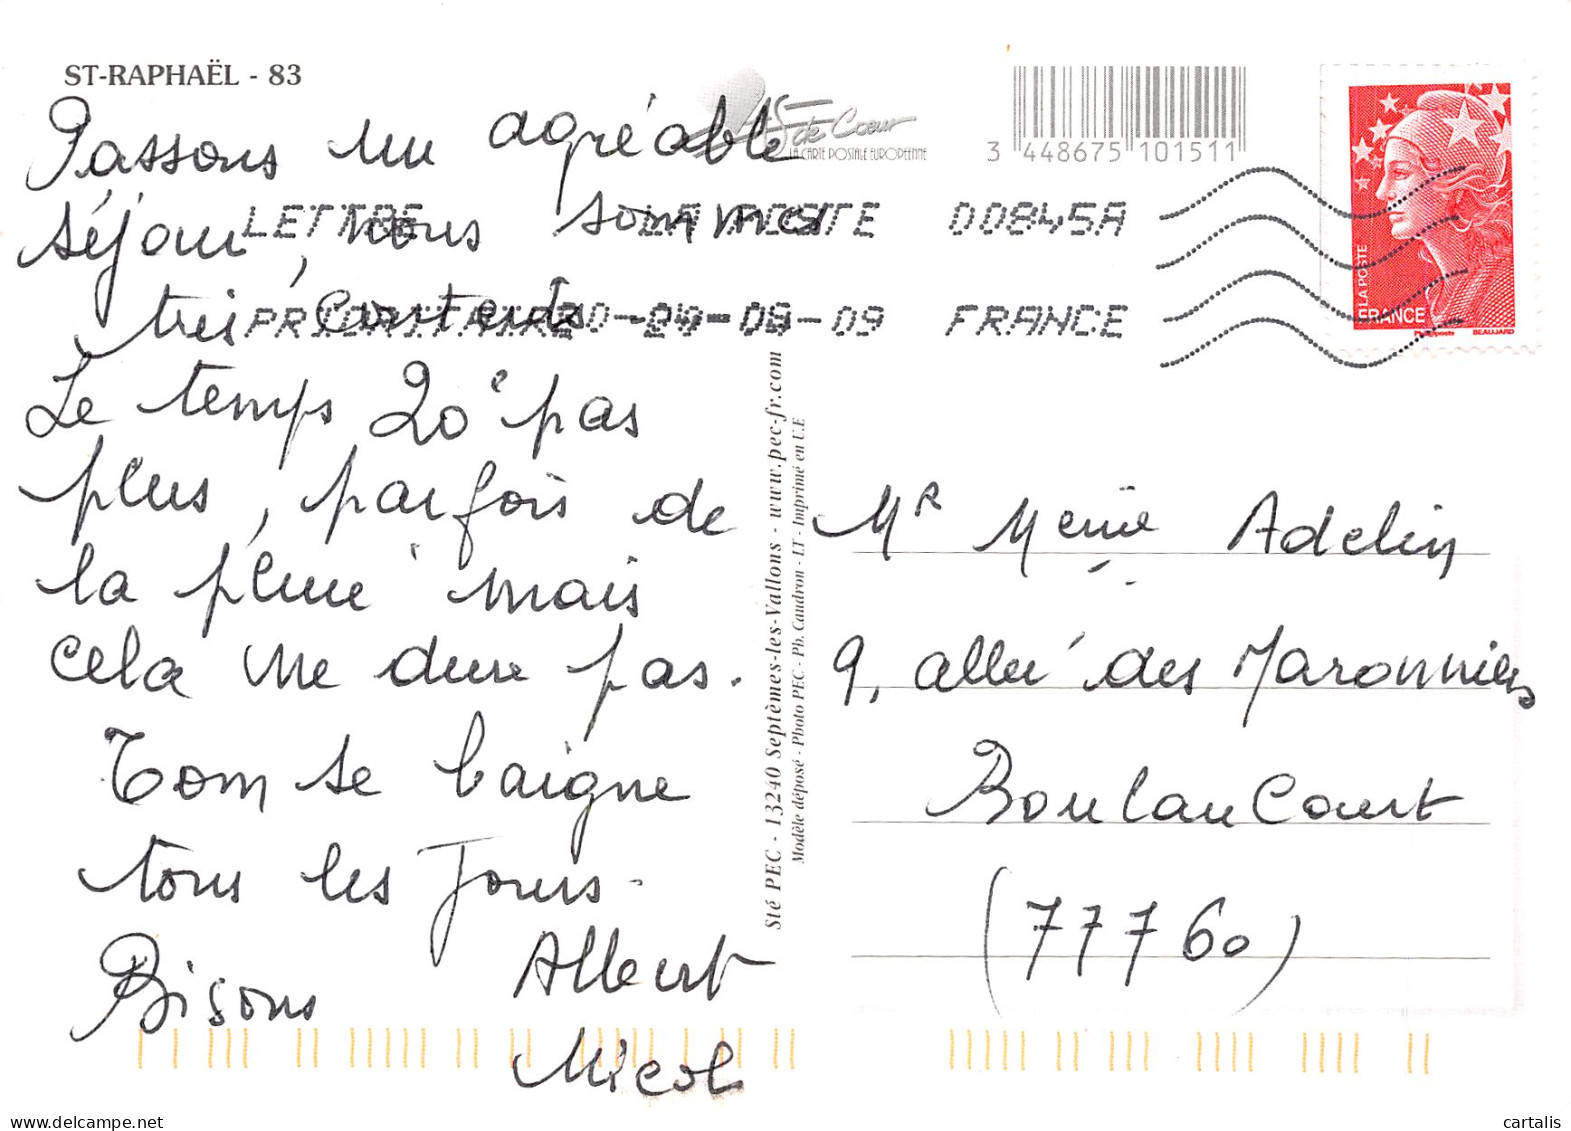 ST-RAPHAËL - 83
Passons un agréable
séjour, nous sommes
très contents
Le temps 20° pas
plus, parfois de
la pluie mais
cela ne dure pas.
Tom se baigne
tous les Jours.
Bisous Albert
Nicol
As de Coeur
LA CARTE POSTALE EUROPÉENNE
3 448675 101511
LETTRE LA POSTE 00845A
PRIORITAIRE 09 FRANCE
LA POSTE
FRANCE
BEAUJARD
Sté PEC - 13240 Septèmes-les-Vallons - www.pec-fr.com
Modèle déposé - Photo PEC - Ph. Caudron - LT - Imprimé en U.E
Mr Adelin
9, allée des Maronniers
Boulancourt
(77760)
cartalis
www.delcampe.net